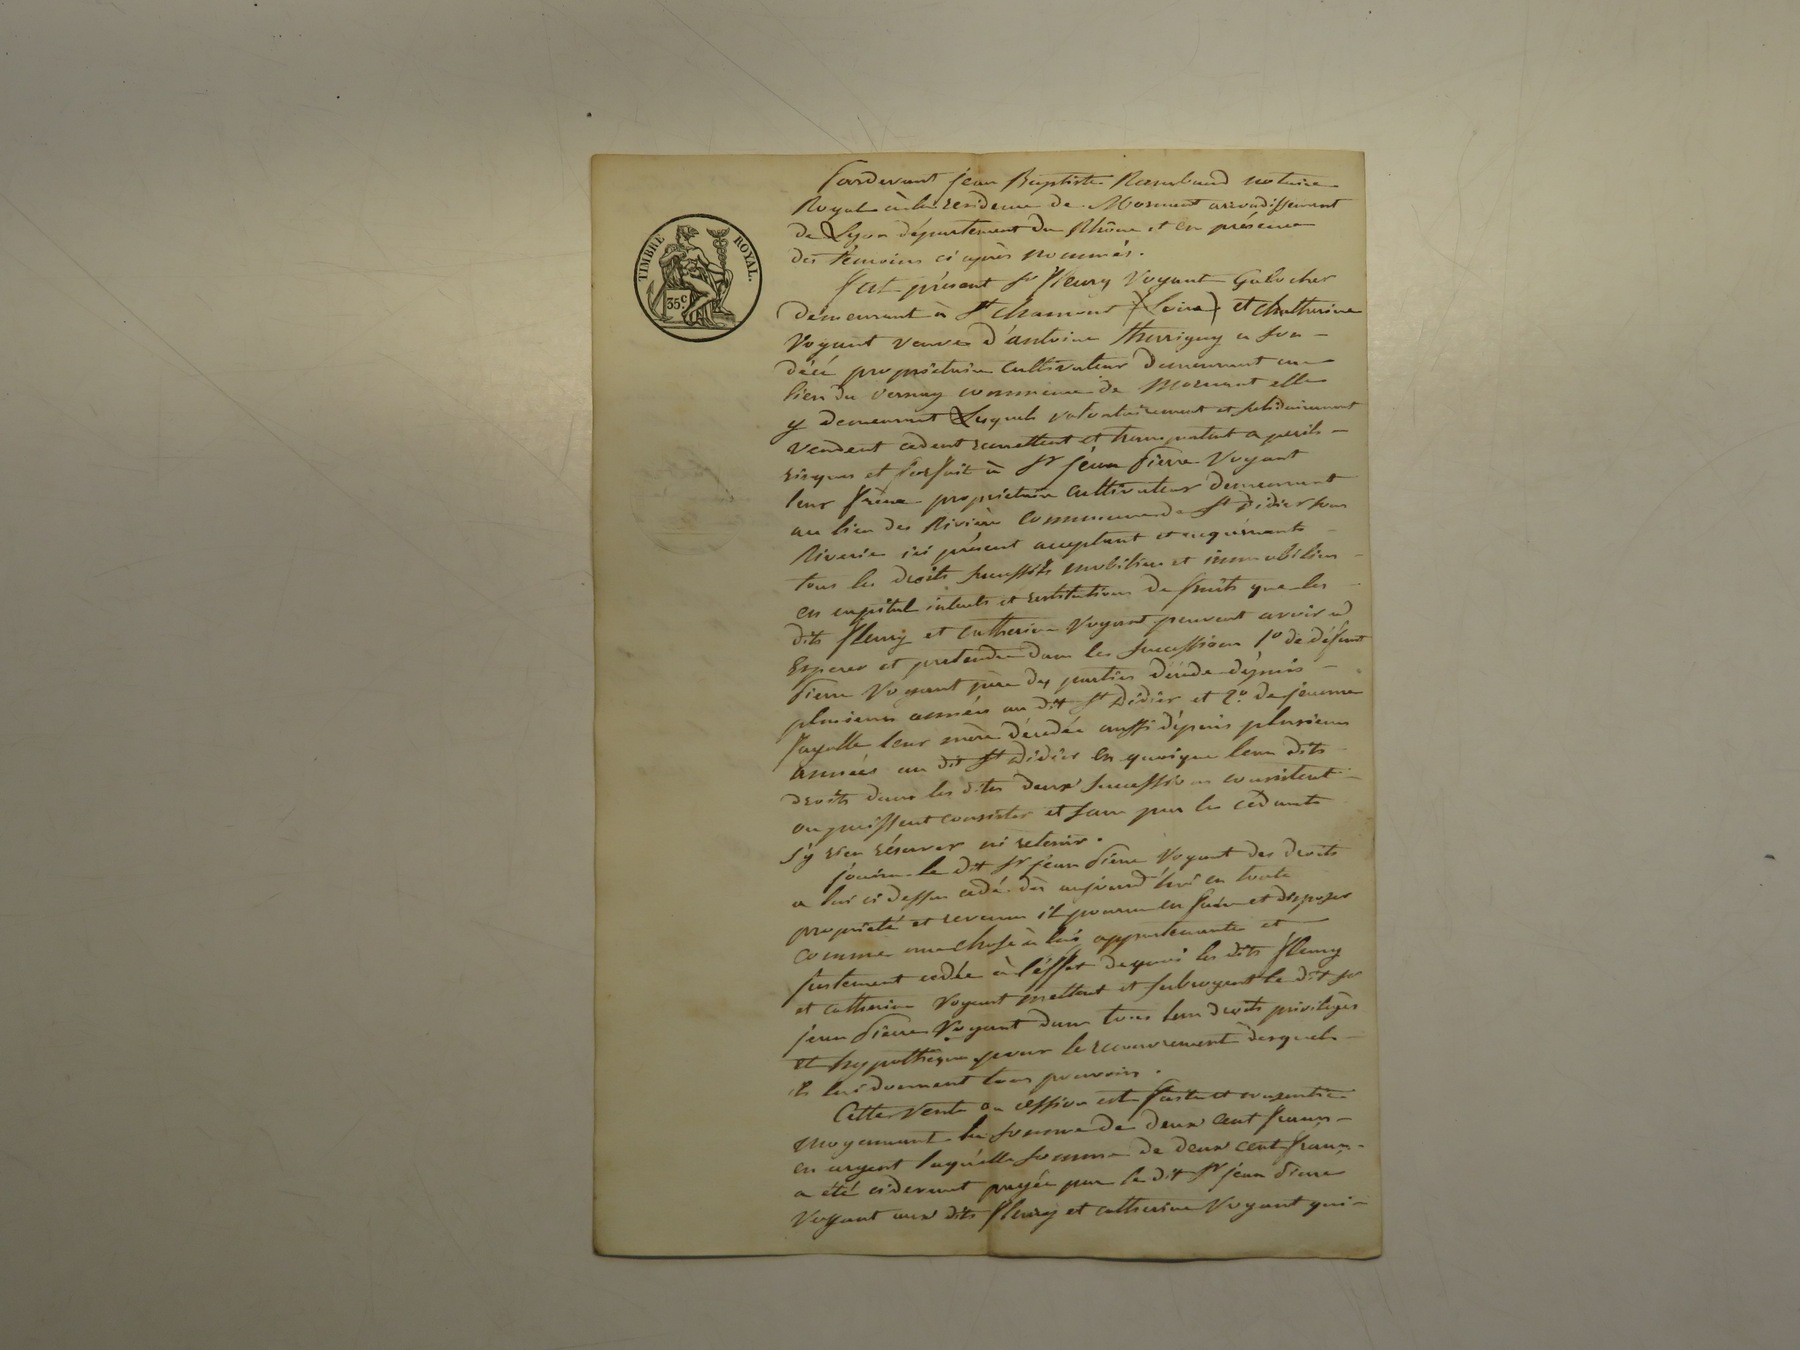 TIMBRE ROYAL.
35 c.
Pardevant jean Baptiste Rambaud notaire
Royal à la residence de Mornant arrondissement
de Lyon département du Rhône et en présence
des témoins ci après nommés.
Fut présent Sr fleury Voyant Galocher
demeurant à St Chamont (Loire) et Catherine
Voyant veuve d'antoine thevigny a son
décé propriétaire cultivateur demeurant au
lieu du vernay commune de Mornant elle
y demeurant Lesquels volontairement et solidairement
vendent cedent remettent et transportent a perils
risques et forfait à Sr jean Pierre Voyant
leur frère propriétaire cultivateur demeurant
au lieu des Rivière commune de St Didier sous
Riverie ici présent acceptant et acquérant
tous les droits successifs mobiliers et immobiliers
en capital intérêts et restitutions de fruits que les
dits fleury et catherine Voyant peuvent avoir
Esperer et pretendre dans les successions 1º de défunt
Pierre Voyant père des parties décédé dépuis
plusieurs années au dit St Didier et 2º de jeanne
fayolle leur mère décédée aussi dépuis plusieurs
années au dit St Didier en quoique leurs dits
droits dans les dites deux successions consistent
ou puissent consister et sans par les cédants
s'y rien réserver ni retenir.
jouira le dit Sr jean Pierre Voyant des droits
a lui ci dessus cédé dès aujourd'hui en toute
propriété et revenus il pourra en faire et disposer
comme une chose à lui appartenante et
justement cédée à l'éffet de quoi les dits fleury
et catherine Voyant mettent et subrogent le dit Sr
jean Pierre Voyant dans tous leurs droits priviléges
et hypothéques pour le recouvrement desquels
ils lui donnent tous pouvoirs.
Cette vente ou cession est faite et consentie
moyennant la somme de deux cent francs
en argent laquélle somme de deux cent francs
a été cidevant payée par le dit Sr jean Pierre
Voyant aux dits fleury et catherine Voyant qui